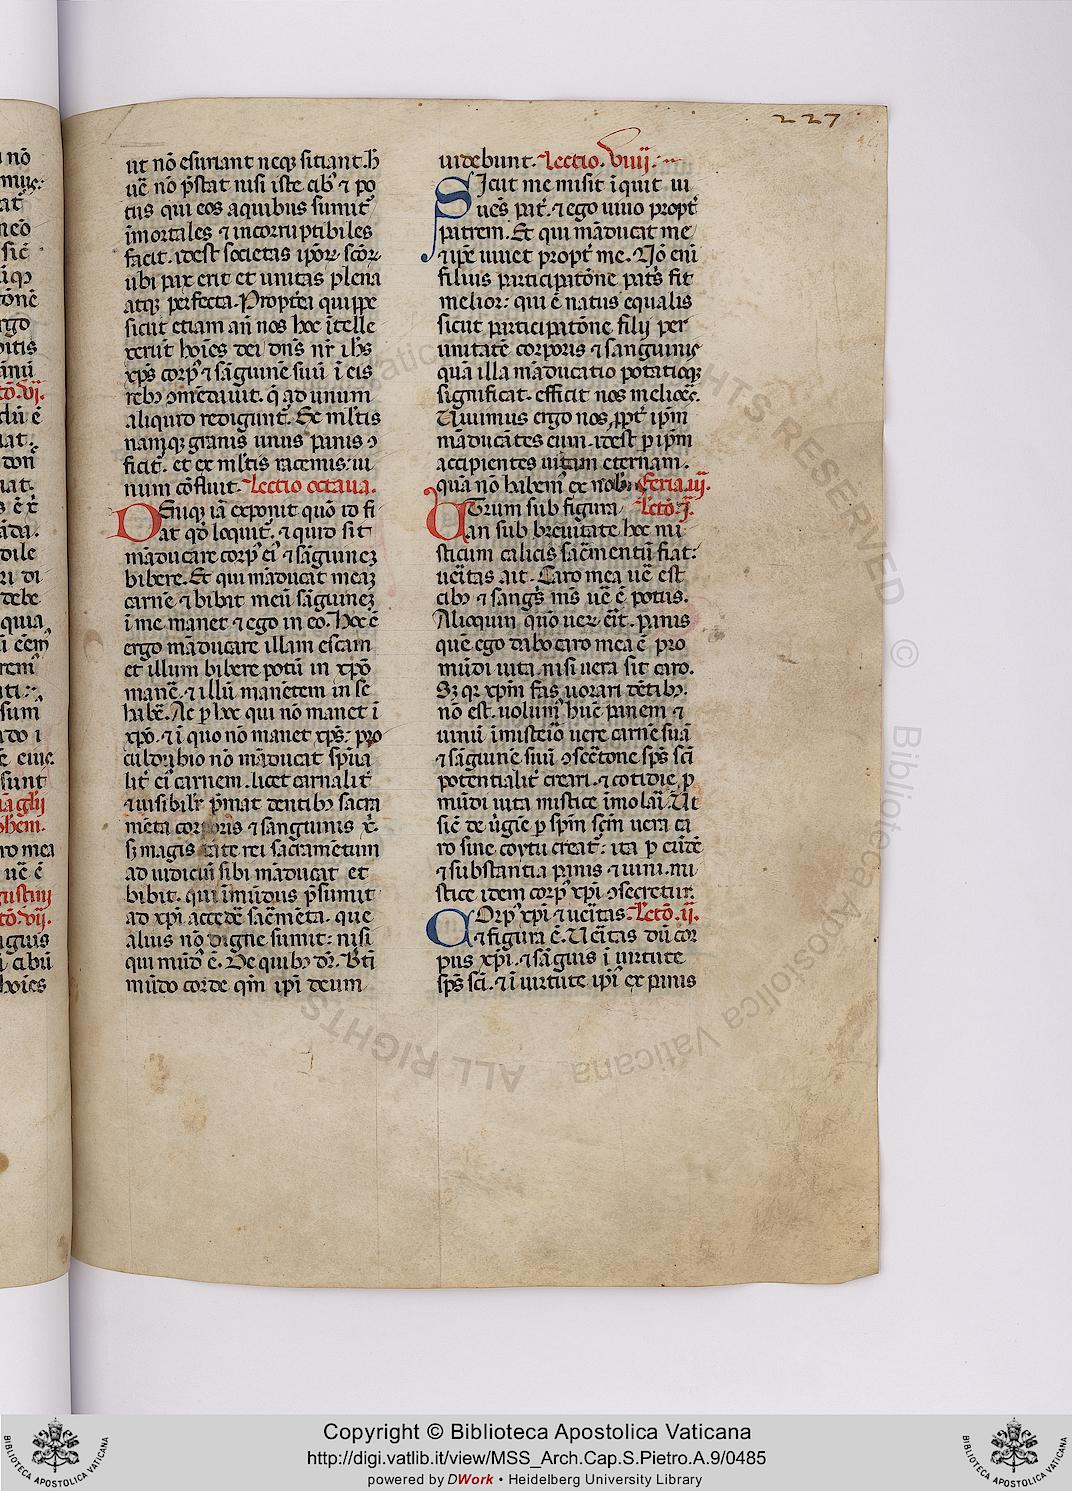 227
ut nō esuriant neqꝫ sitiant. h̄
uē nō p̄stat nisi iste cib᷒ ⁊ po
tus qui eos a quibus sumit᷑
īmortales ⁊ incorruptibiles
facit. idest societas ip̄oꝝ sc̄oꝝ
ubi pax erit et unitas plena
atqꝫ perfecta. Propterea quippe
sicut etiam an̄ nos hoc ītelle
xerūt hoīes dei dn̄s nr̄ ih̄s
xp̄s corp᷒ ⁊ sāguinē suū ī eis
reb᷒ ꝯmēdauit. q̄ ad unum
aliquid rediguntᷣ. Ex ml̄tis
namqꝫ granis unus panis ꝯ
ficitᷣ. et ex ml̄tis racemis: ui
num cōfluit. Lectio octaua.
DEniqꝫ iā exponit quō id fi
at qd̄ loquitᷣ. ⁊ quid sit
māducare corp᷒ ei᷒ ⁊ sāguineꝫ
bibere. Et qui māducat meaꝫ
carnē ⁊ bibit meū sāguineꝫ
ī me manet ⁊ ego in eo. Hoc ē
ergo māducare illam escam
et illum bibere potū in xp̄o
manē̄. ⁊ illū manētem in se
habē̄. Ac p̱ hoc qui nō manet ī
xp̄o. ⁊ ī quo nō manet xp̄s: pro
cul dubio nō māducat sp̄ua
litᷣ ei᷒ carnem. licet carnalitᷣ
⁊ uisibilr̄ p̄mat dentib᷒ sacra
mēta corporis ⁊ sanguinis x̄.
sꝫ magis tāte rei sacramētum
ad iudiciū sibi māducat et
bibit. qui īmūdus p̄sumit
ad xp̄i accedē̄ sac̄mēta. que
alius nō digne sumit: nisi
qui mūd᷒ ē. De quib᷒ dr̄. Bt̄i
mūdo corde qm̄ ip̄i deum
uidebunt. Lectio. viiij.
SIcut me misit īquit ui
uēs patᷣ. ⁊ ego uiuo proptᷣ
patrem. Et qui māducat me
⁊ ip̄e uiuet proptᷣ me. Nō enī
filius participatōne pat̄s fit
melior: qui ē natus equalis
sicut participatōne filij per
unitatē corporis ⁊ sanguinis
quā illa māducatio potatioqꝫ
significat. efficit nos meliōēs.
Uiuimus ergo nos ꝓpt̄ ip̄m
māducātes eum. idest p̱ ip̄m
accipientes uitam eternam.
quā nō habem᷒ ex nob. Feria.iij.
UTrum sub figura Lctō. j.
an sub breuitate hoc mi
sticum calicis sac̄mentū fiat:
uēitas ait. Caro mea uē est
cib᷒ ⁊ sang̃s m̄s uē ē potus.
Alioquin quō uer᷒ ēit. panis
quē ego dabo caro mea ē pro
mūdi uita. nisi uera sit caro.
Sꝫ qr̄ xp̄m fas uorari dētib᷒.
nō est. uolum᷒ hūc panem ⁊
uinū ī misteīo uere carnē suā
⁊ sāguinē suū ꝯsec̄tone sp̄s sc̄i
potentialitᷣ creari. ⁊ cotidie p̱
mūdi uita mistice īmolari. Ut
sic̄ de uīgīe p̱ spīm sc̄m uera ca
ro sine coytu creatᷣ: ita p̱ eūdē
⁊ substantia panis ⁊ uini. mi
stice idem corp᷒ xp̄i ꝯsecretur.
COrp᷒ xp̄i ⁊ uēitas. Lctō. ij.
⁊ figura ē. Uēitas dū cor
pus xp̄i. ⁊ sāguis ī uirtute
sp̄s sc̄i. ⁊ ī uirtute ip̄i᷒ ex panis
Copyright © Biblioteca Apostolica Vaticana
http://digi.vatlib.it/view/MSS_Arch.Cap.S.Pietro.A.9/0485
powered by DWork • Heidelberg University Library
BIBLIOTECA APOSTOLICA VATICANA
BIBLIOTECA APOSTOLICA VATICANA